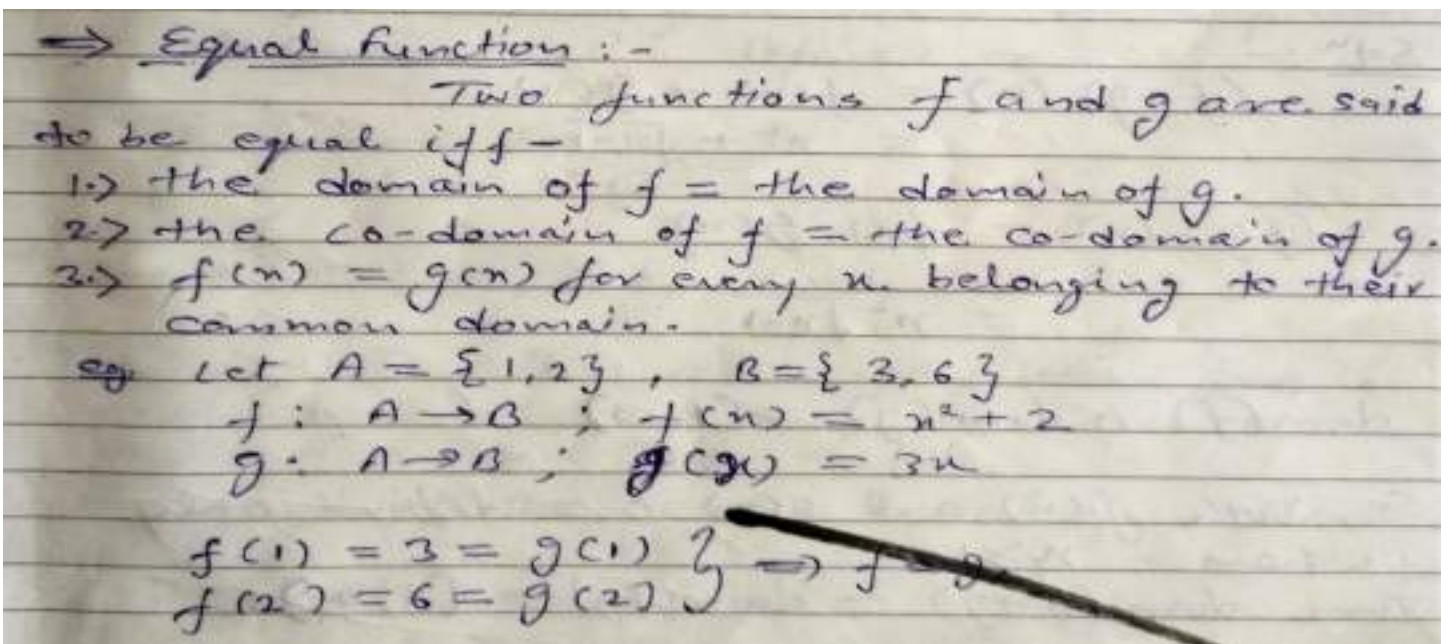 ⇒ Equal Function :-
Two functions f and g are said
to be equal iff -
1.> the domain of f = the domain of g.
2.> the co-domain of f = the co-domain of g.
3.> f(x) = g(x) for every x belonging to their
common domain.
eg. Let A = {1,2} , B = {3,6}
f : A → B ; f(x) = x² + 2
g : A → B ; g(x) = 3x
f(1) = 3 = g(1) } ⇒ f = g.
f(2) = 6 = g(2)